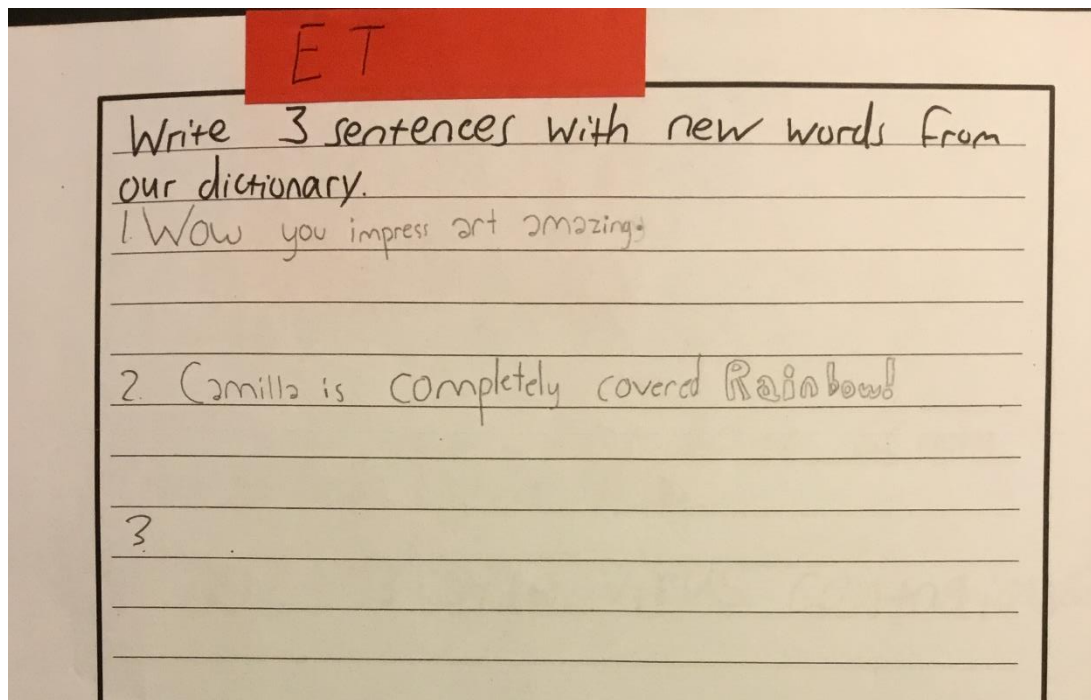 ET
Write 3 sentences with new words from
our dictionary.
1. Wow you impress art amazing.
2. Camilla is completely covered Rainbow!
3